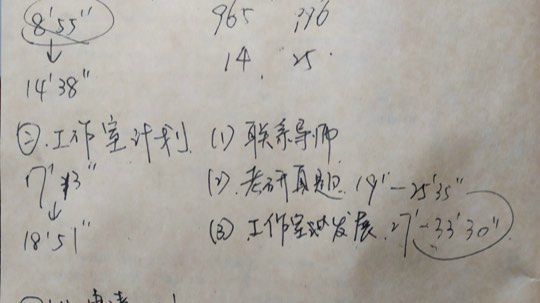 8'55" 965 396
↓ 14 25
14'38"
②.工作室计划 (1) 联系导师
17'13" (2) 考研真题 19"-25'35"
↓
18'51" (3) 工作室的发展 27'-33'30"